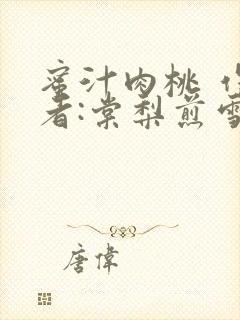 蜜汁肉桃 作
者:棠梨煎雪
唐偉